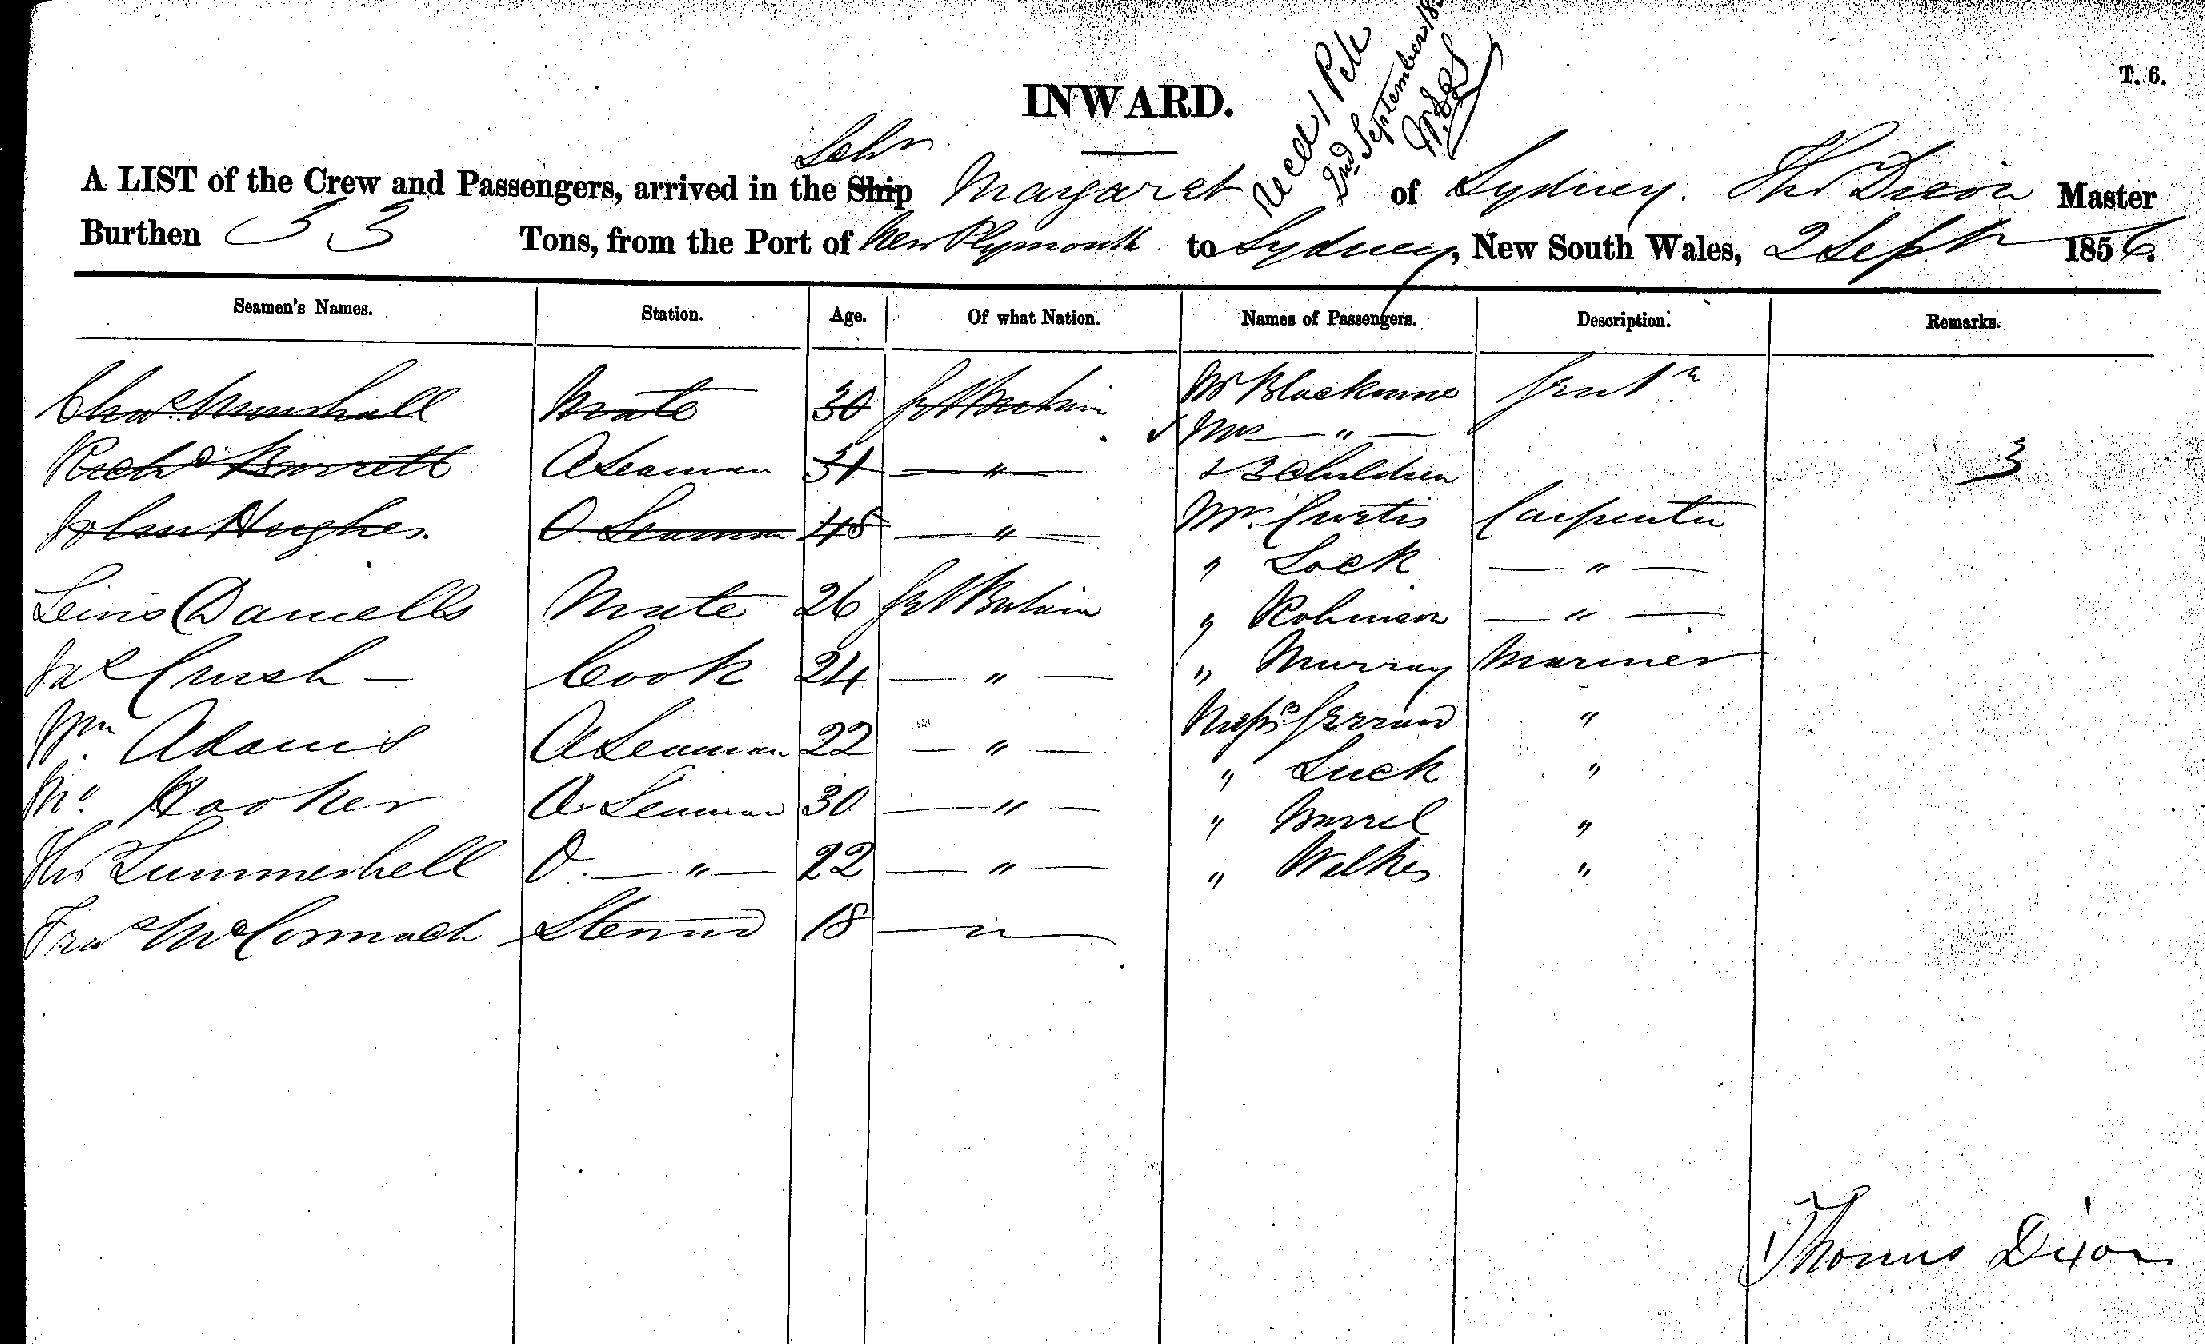 INWARD.
T. 6.
Recd 1 Pele
2nd September 185
Schr
A LIST of the Crew and Passengers, arrived in the Ship Margaret of Sydney. Thos Dixon Master
Burthen 53 Tons, from the Port of New Plymouth to Sydney, New South Wales, 2 Septr 1856.
Seamen's Names. Station. Age. Of what Nation. Names of Passengers. Description. Remarks.
Chas Marshall Mate 30 Gt Britain Mr Blackmore Gentn
Mrs — " —
Richd Barrett A Seaman 31 — " — & 3 Children 3
John Hughes. O Seaman 48 — " — Mr. Curtis Carpenter
" Lock — " —
Lewis Daniells Mate 26 Gt Britain " Robinson — " —
Jas Crush — Cook 24 — " — " Murray Mariner
Wm. Adams A Seaman 22 — " — Messrs "
" Luck "
Hooker A Seaman 30 — " — " "
Thos Summerhell O. — " — 22 — " — " Wilkes "
Fras McCormack Steward 18 — " —
Thomas Dixon